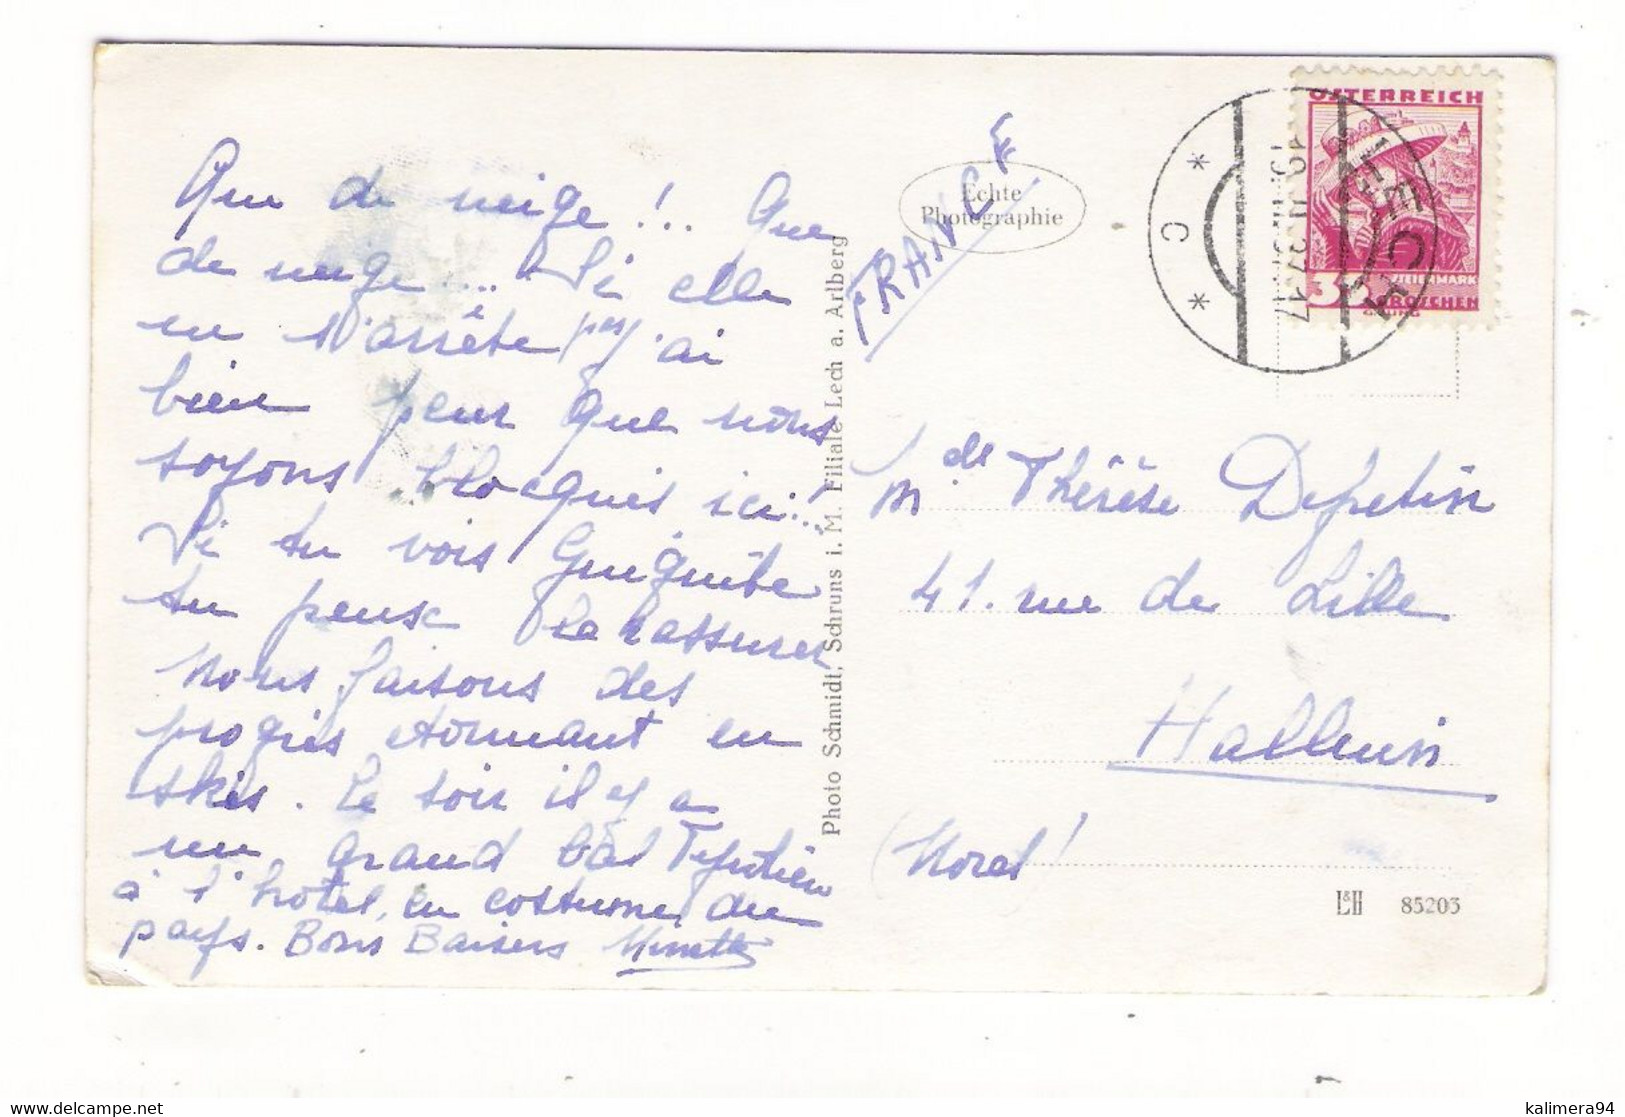 Que de neige !.. Que
de neige ... Si elle
ne s'arrête pas j'ai
bien peur que nous
soyons bloqués ici..!
Si tu vois Guiguite
tu peux la rassurer
Nous faisons des
progrès étonnant en
skis. Le soir il y a
un grand bal
à l'hotel, en costume du
pays. Bons Baisers Minette
Photo Schmidt, Schruns i. M. Filiale Lech a. Arlberg
Echte
Photographie
FRANCE
ÖSTERREICH
STEIERMARK
GROSCHEN
LECH
* C *
Mde Thérèse Defretin
41. rue de Lille
Halluin
(Nord)
L&H 85203
kalimera94